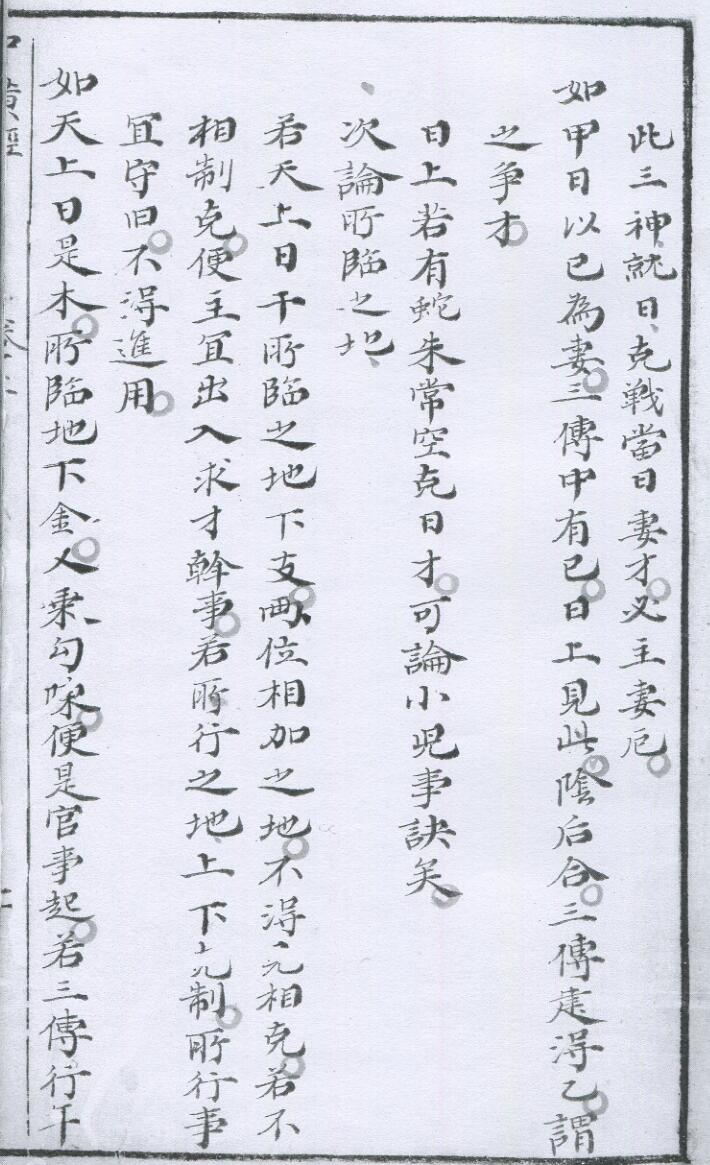 此三神就日克戦當日妻才必主妻厄
如甲日以己為妻三傳中有己日上見此陰后合三傳遁得乙謂
之争才
日上若有蛇朱常空克日才可論小児事訣矣
次論所臨之地
若天上日干所臨之地下支兩位相加之地不得元相克若不
相制克便主冝出入求才幹事若所行之地上下克制所行事
冝守旧不得進用
如天上日是木所臨地下金又乘勾
便是官事起若三傳行年
中黃經